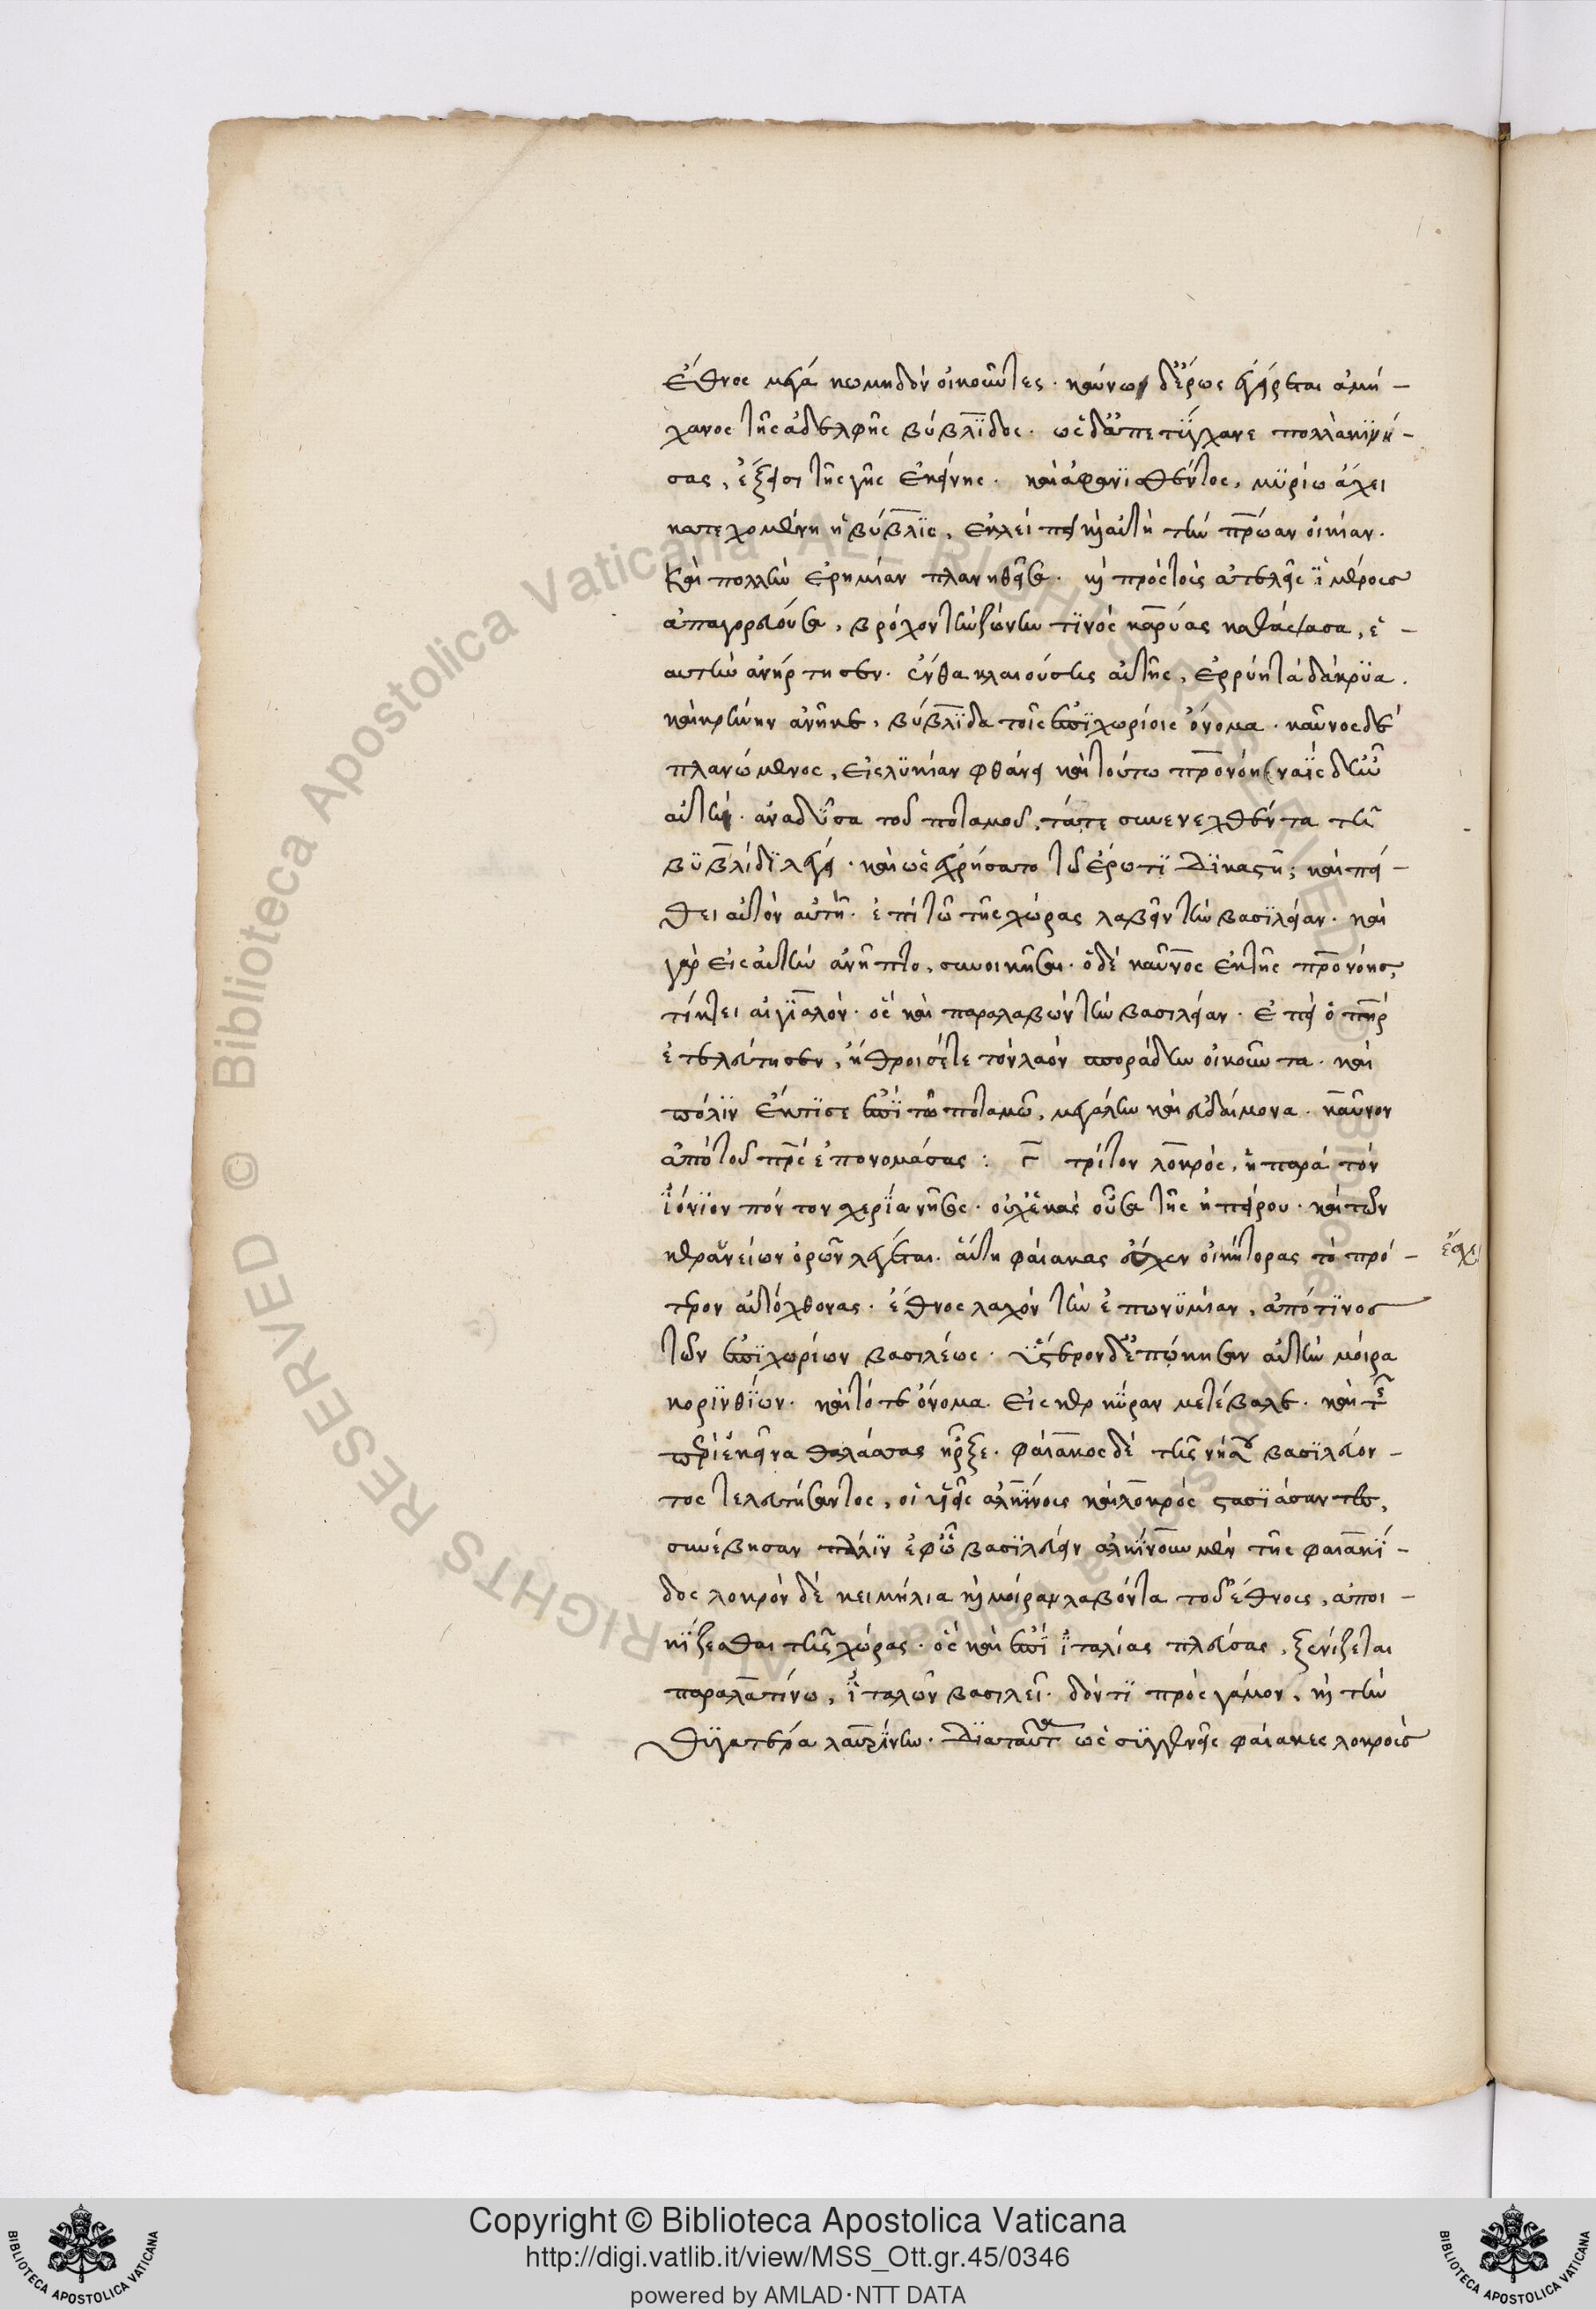 ἔθνος μέγα κωμηδὸν οἰκοῦντες. καύνω δ' ἔρως ἐγείρεται ἀμή-
χανος τῆς ἀδελφῆς βυβλίδος. ὡς δ' ἀπετύγχανε πολλὰ κινή-
σας, ἔξεισι τῆς γῆς ἐκείνης. καὶ ἀφανισθέντος, μυρίω ἄχει
κατεχομένη ἡ βυβλὶς, ἐκλείπει καὶ αὐτὴ τὴν πατρώαν οἰκίαν.
καὶ πολλὴν ἐρημίαν πλανηθεῖσα. καὶ πρὸς τοὺς ἀτελεῖς ἱμέρους
ἀπαγορεύουσα, βρόχον τὴν ζώνην τινὸς καρύας καθάψασα, ἑ-
αυτὴν ἀνήρτησεν. ἔνθα κλαιούσης αὐτῆς, ἐρρύη τὰ δάκρυα.
καὶ κρήνην ἀνῆκε, βυβλίδα τοῖς ἐπιχωρίοις ὄνομα. καῦνος δὲ
πλανώμενος, εἰς λυκίαν φθάνει καὶ τούτω προνόη ναῒς δ' ἦν
αὐτὴ. ἀναδῦσα τοῦ ποταμοῦ, τά τε συνενεχθέντα τῆ
βυβλίδι λέγει. καὶ ὡς ἐχρήσατο τῶ ἔρωτι δικαστῆ; καὶ πεί-
θει αὐτὸν αὐτῆ. ἐπὶ τῶ τῆς χώρας λαβεῖν τὴν βασιλείαν. καὶ
γὰρ εἰς αὐτὴν ἀνῆπτο, συνοικῆσαι. ὁ δὲ καῦνος ἐκ τῆς προνόης,
τίκτει αἰγιαλόν. ὃς καὶ παραλαβὼν τὴν βασιλείαν. ἐπεὶ ὁ πατὴρ
ἐτελεύτησεν, ἤθροισέ τε τὸν λαὸν σποράδην οἰκοῦντα. καὶ
πόλιν ἔκτισε ἐπὶ τῶ ποταμῶ, μεγάλην καὶ εὐδαίμονα. καῦνον
ἀπὸ τοῦ πατρὸς ἐπονομάσας: Γ τρίτον λοκρὸς, ἡ παρὰ τὸν
ἰόνιον πόντον χερία νῆσος. οὐχ ἑκὰς οὖσα τῆς ἠπείρου. καὶ τῶν
κεραυνείων ὀρῶν λέγεται. αὕτη φαίακας εἶχεν οἰκήτορας τὸ πρό-
τερον αὐτόχθονας. ἔθνος λαχὸν τὴν ἐπωνυμίαν, ἀπό τινος
τῶν ἐπιχωρίων βασιλέως. ὕστερον δ' ἐπώκησαν αὐτὴν μοῖρα
κορινθίων. καὶ τό τε ὄνομα. εἰς κερκύραν μετέβαλε. καὶ τῆς
περὶ ἐκεῖνα θαλάσσας ἦρξε. φαίακος δὲ τῆς νήσου βασιλεύον-
τος τελευτήσαντος, οἱ υἱεῖς ἀλκίνοος καὶ λοκρὸς στασιάσαντες,
συνέβησαν πάλιν ἐφ' ᾧ βασιλεύειν ἀλκίνουν μὲν τῆς φαιακί-
δος λοκρὸν δὲ κειμήλια καὶ μοῖραν λαβόντα τοῦ ἔθνους, ἀποι-
κίζεσθαι τῆς χώρας. ὃς καὶ ἐπὶ ἰταλίας πλεύσας, ξενίζεται
παρὰ λατίνω, ἰταλῶν βασιλεῖ. δόντι πρὸς γάμον, καὶ τὴν
θυγατέρα λαυρίνην. διὰ ταῦτα ὡς συγγενεῖς φαίακες λοκροὺς
Copyright © Biblioteca Apostolica Vaticana
http://digi.vatlib.it/view/MSS_Ott.gr.45/0346
powered by AMLAD·NTT DATA